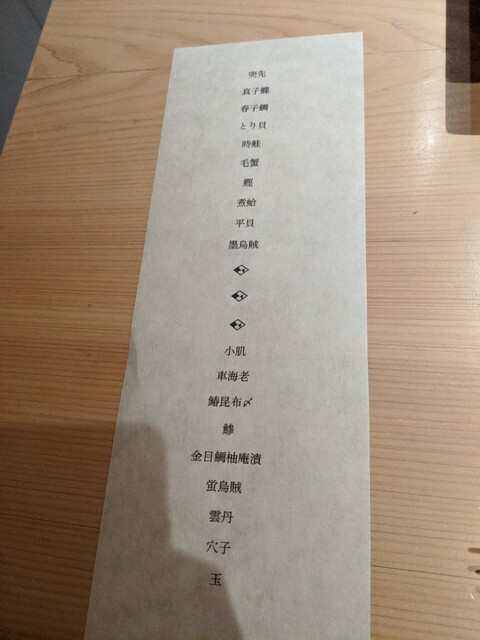 突先
真子鰈
春子鯛
とり貝
時鮭
毛蟹
鰹
煮蛤
平貝
墨烏賊
小肌
車海老
鰆昆布〆
鯵
金目鯛柚庵漬
蛍烏賊
雲丹
穴子
玉